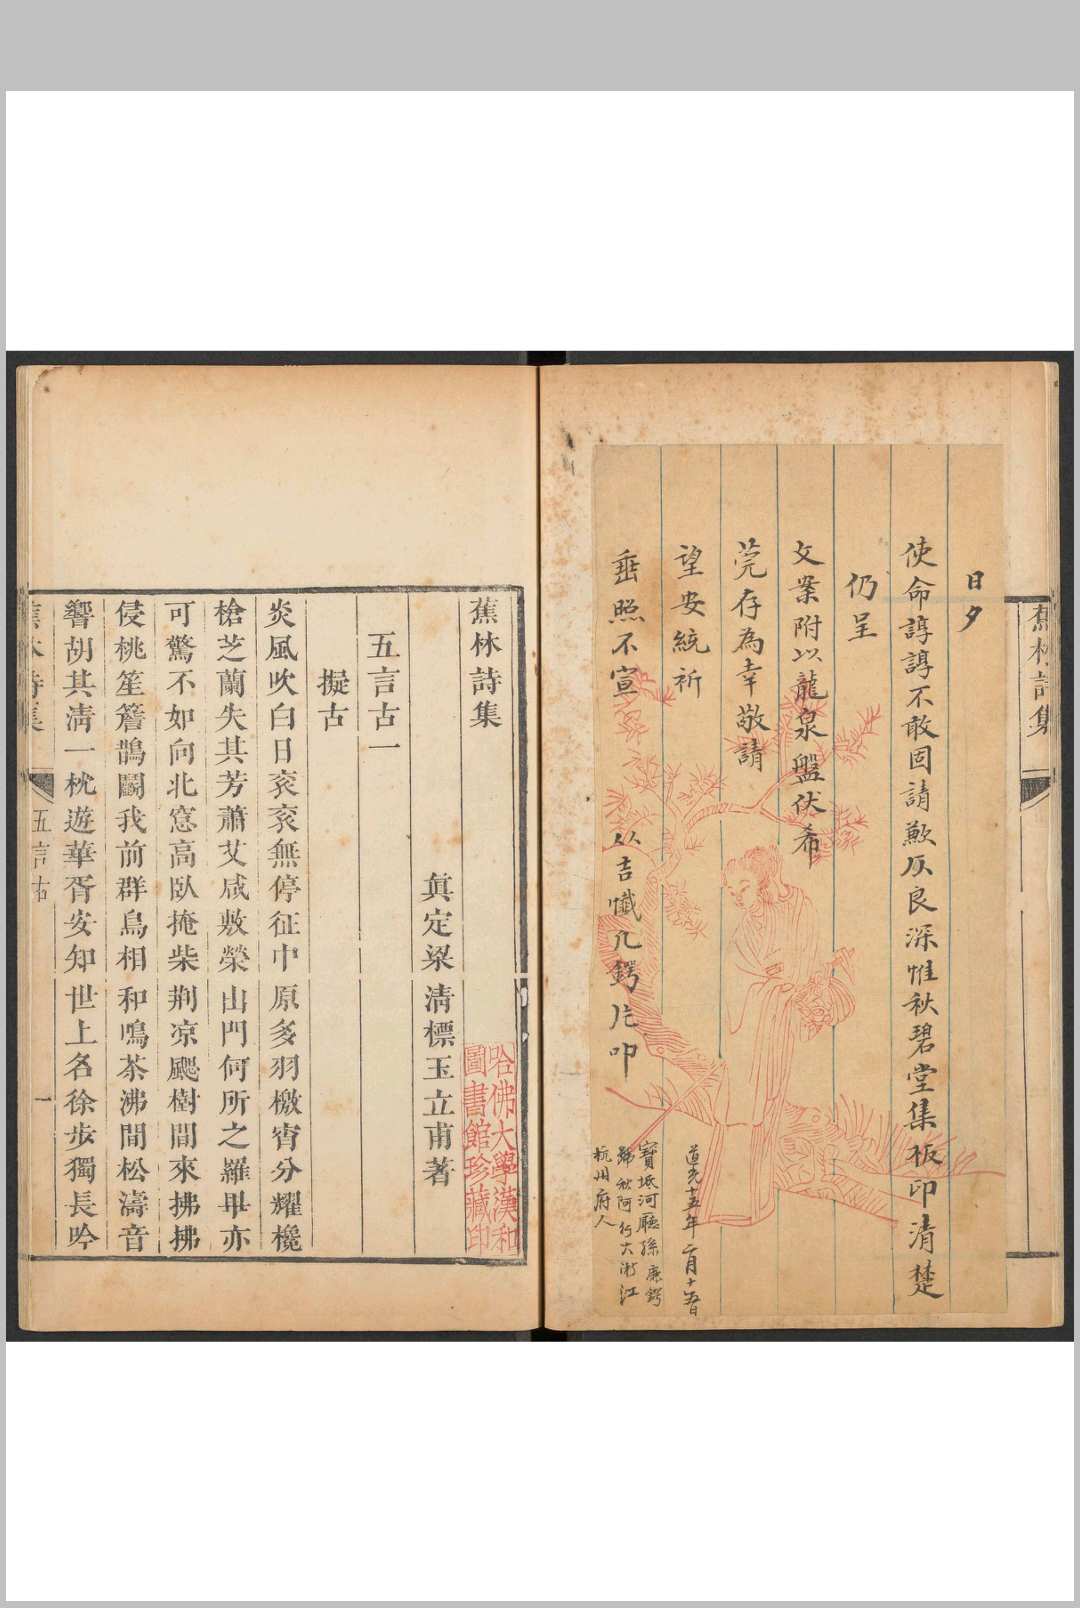 蕉林詩集
日夕
使命諄諄不敢固請歉仄良深惟秋碧堂集板印清楚
仍呈
文案附以龍泉盤伏希
莞存為幸敬請
望安統祈
垂照不宣
以吉懺凡鍔
叩
道光十五年二月十五日
寶坻河廳孫廉鍔
號秋阿行大浙江
杭州府人
蕉林詩集
眞定梁清標玉立甫著
五言古一
擬古
炎風吹白日袞袞無停征中原多羽檄宵分耀欃
槍芝蘭失其芳蕭艾咸敷榮出門何所之羅畢亦
可驚不如向北窓高臥掩柴荆凉颸樹間來拂拂
侵桃笙簷鵲鬬我前群鳥相和鳴茶沸間松濤音
響胡其淸一枕遊華胥安知世上名徐步獨長吟
蕉林詩集
五言古
一
哈佛大學漢和
圖書館珍藏印